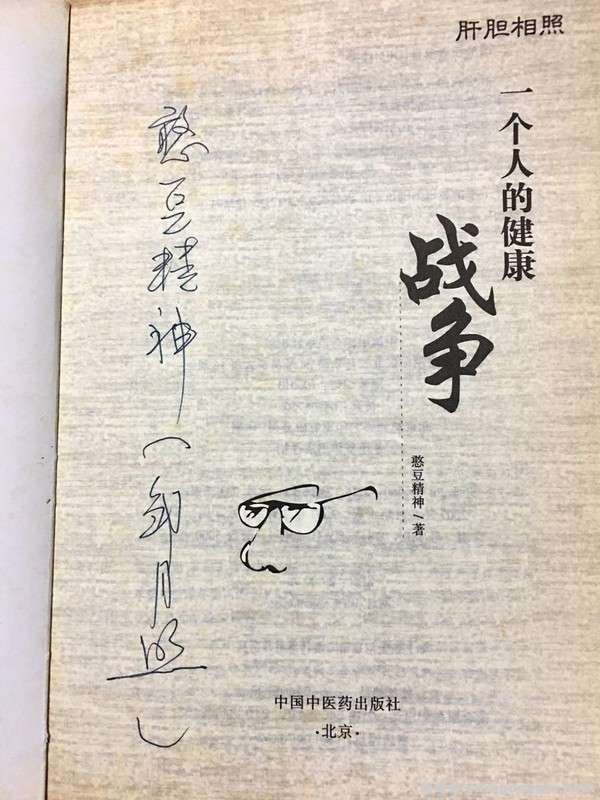 肝胆相照
一个人的健康
战争
憨豆精神/著
憨豆精神(
月照)
中国中医药出版社
·北京·